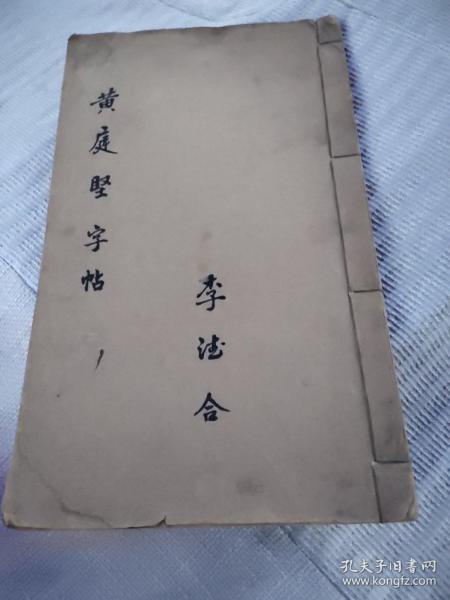 黄庭坚字帖
李法合
孔夫子旧书网
www.kongfz.com